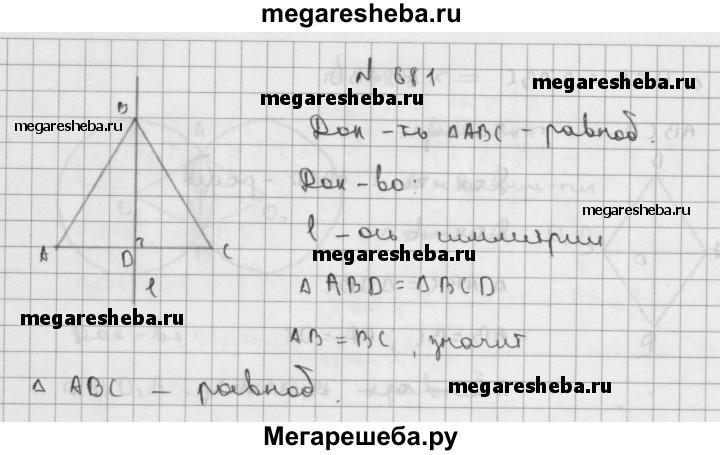 megaresheba.ru
N 681
megaresheba.ru
Док-ть △ABC - равноб.
megaresheba.ru
Док-во:
megaresheba.ru
l - ось симметрии
megaresheba.ru
△ ABD = △BCD
megaresheba.ru
AB = BC, значит
△ ABC - равноб.
megaresheba.ru
B
A
D
C
l
Мегарешеба.ру